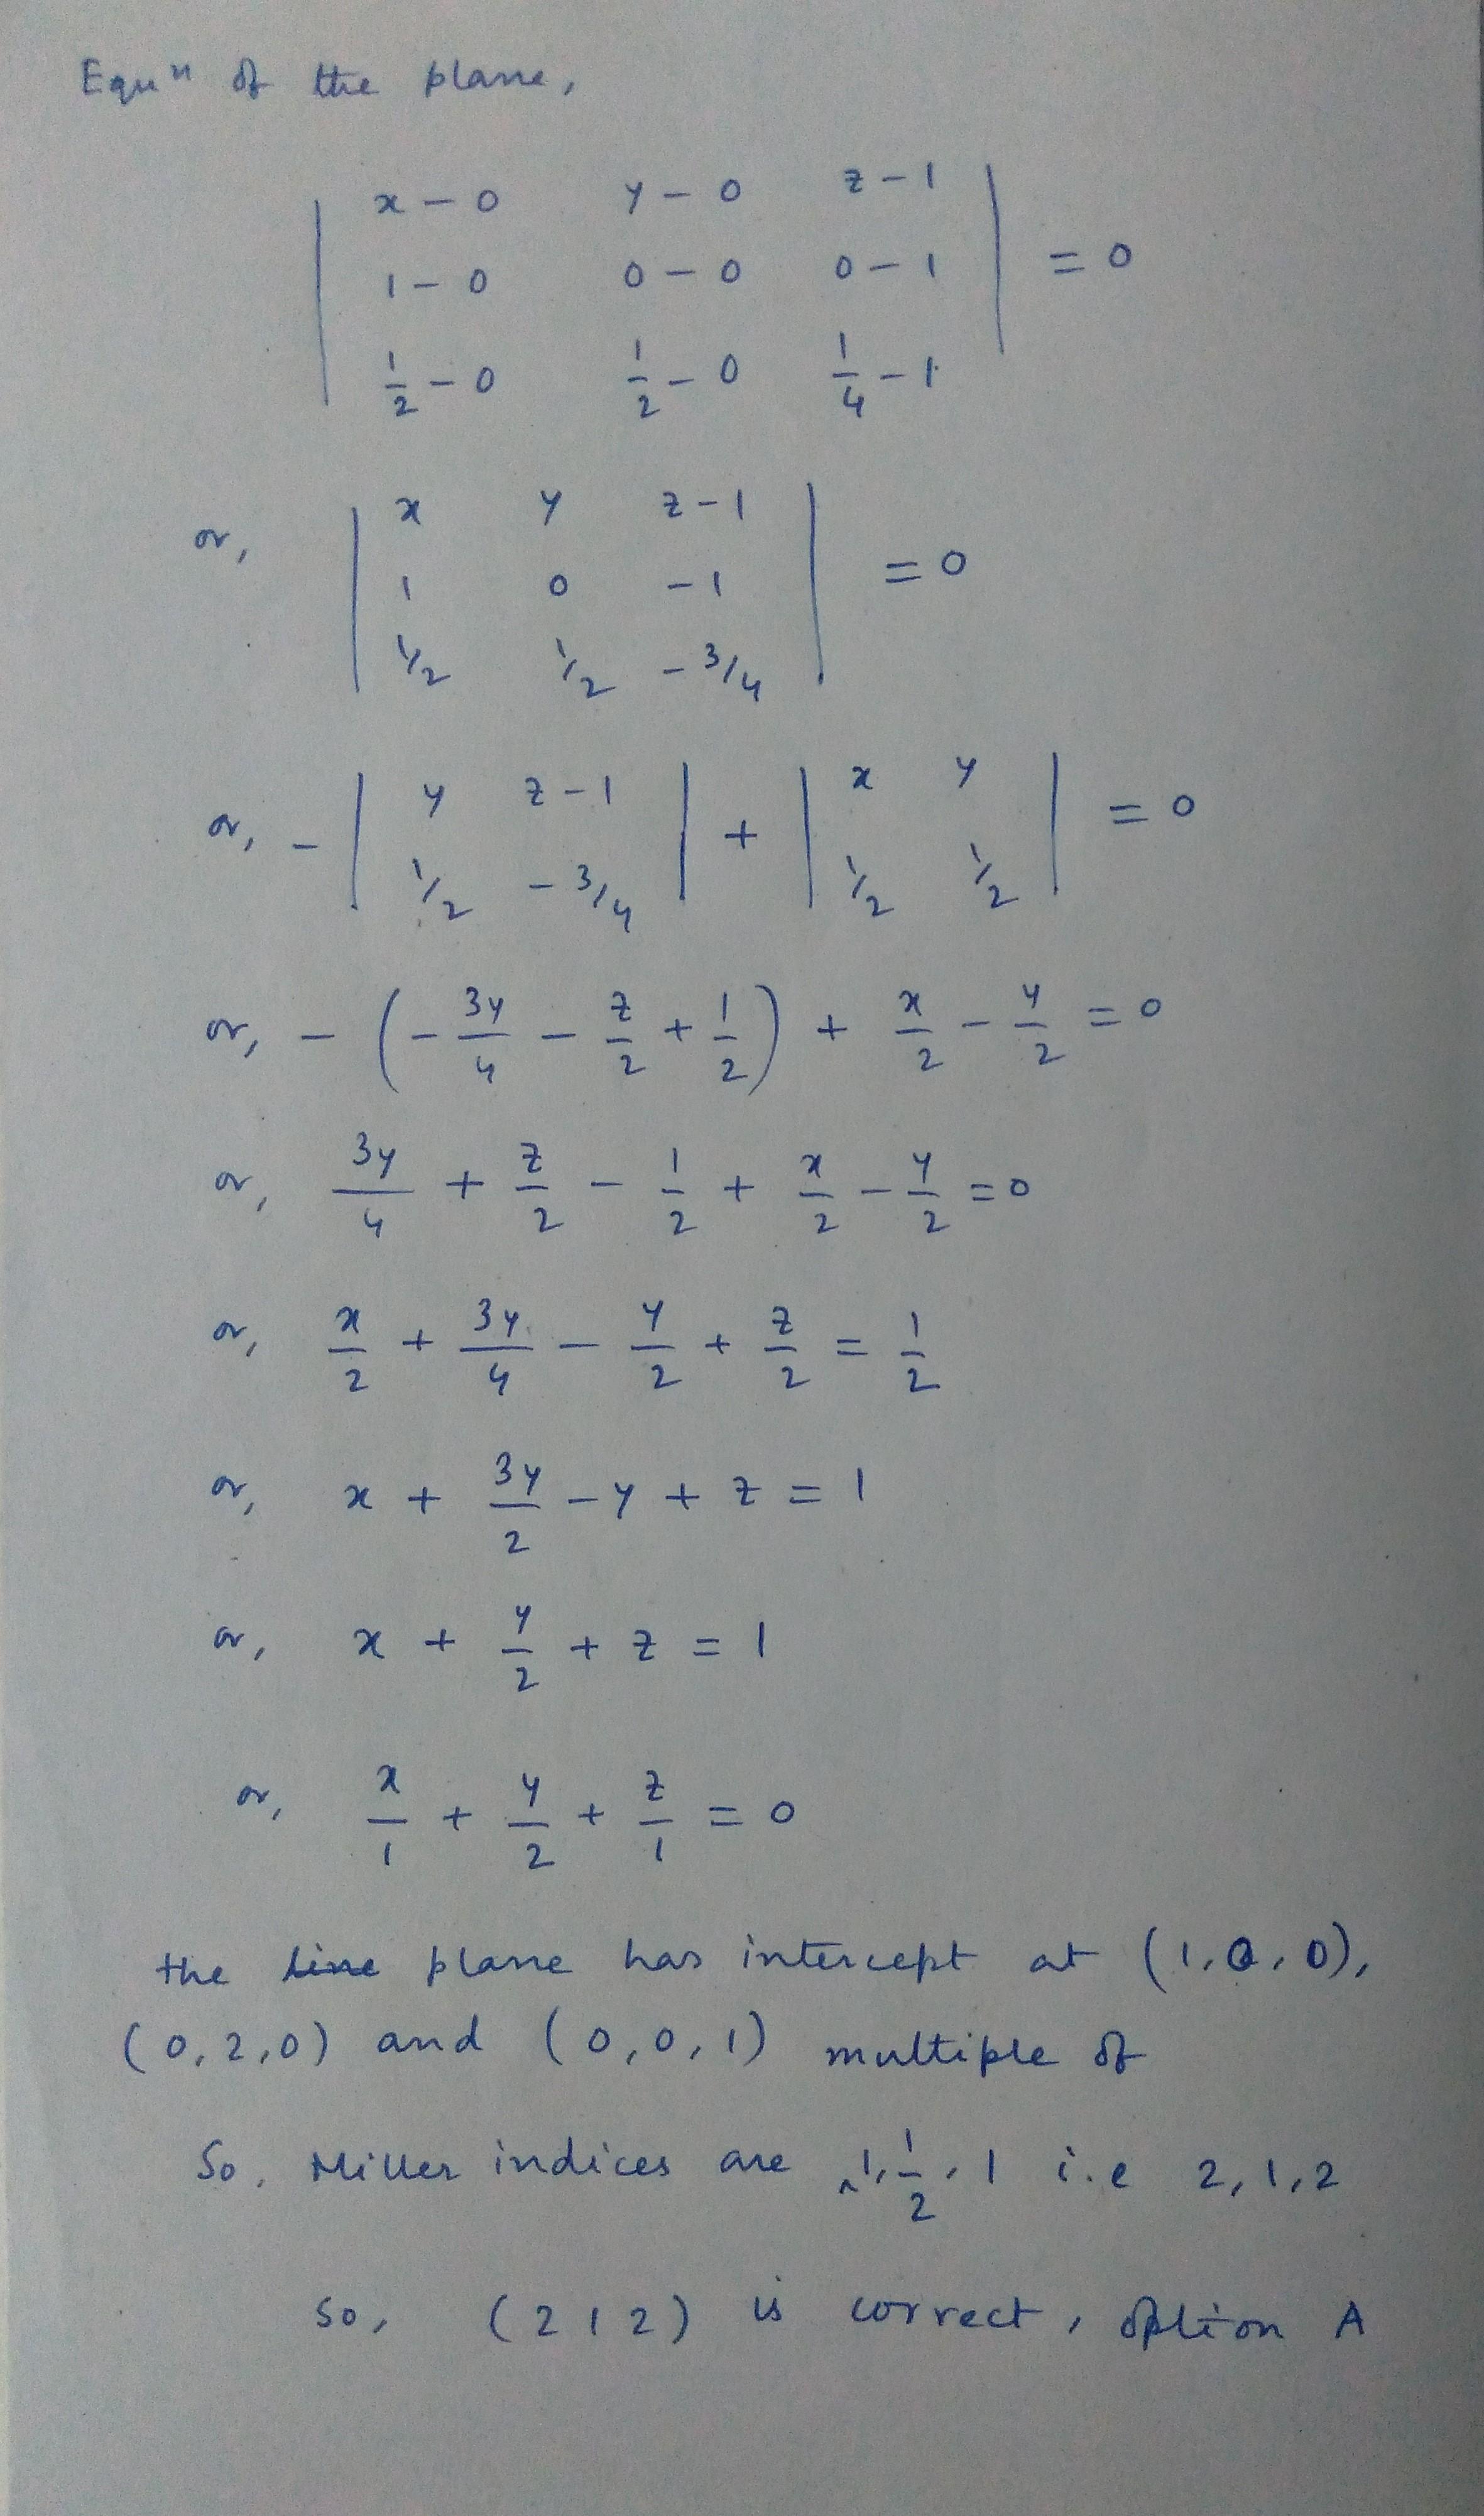 Equⁿ of the plane,
| x - 0   y - 0   z - 1 |
| 1 - 0   0 - 0   0 - 1 | = 0
| 1/2 - 0   1/2 - 0   1/4 - 1 |
or, | x   y   z - 1 |
| 1   0   -1 | = 0
| 1/2   1/2   -3/4 |
or, - | y   z - 1 | + | x   y | = 0
| 1/2   -3/4 |   | 1/2   1/2 |
or, - ( - 3y/4 - z/2 + 1/2 ) + x/2 - y/2 = 0
or, 3y/4 + z/2 - 1/2 + x/2 - y/2 = 0
or, x/2 + 3y/4 - y/2 + z/2 = 1/2
or, x + 3y/2 - y + z = 1
or, x + y/2 + z = 1
or, x/1 + y/2 + z/1 = 0
the line plane has intercept at (1, 0, 0),
(0, 2, 0) and (0, 0, 1) multiple of
So, Miller indices are ^ 1, 1/2, 1 i.e 2, 1, 2
so, (2 1 2) is correct, option A